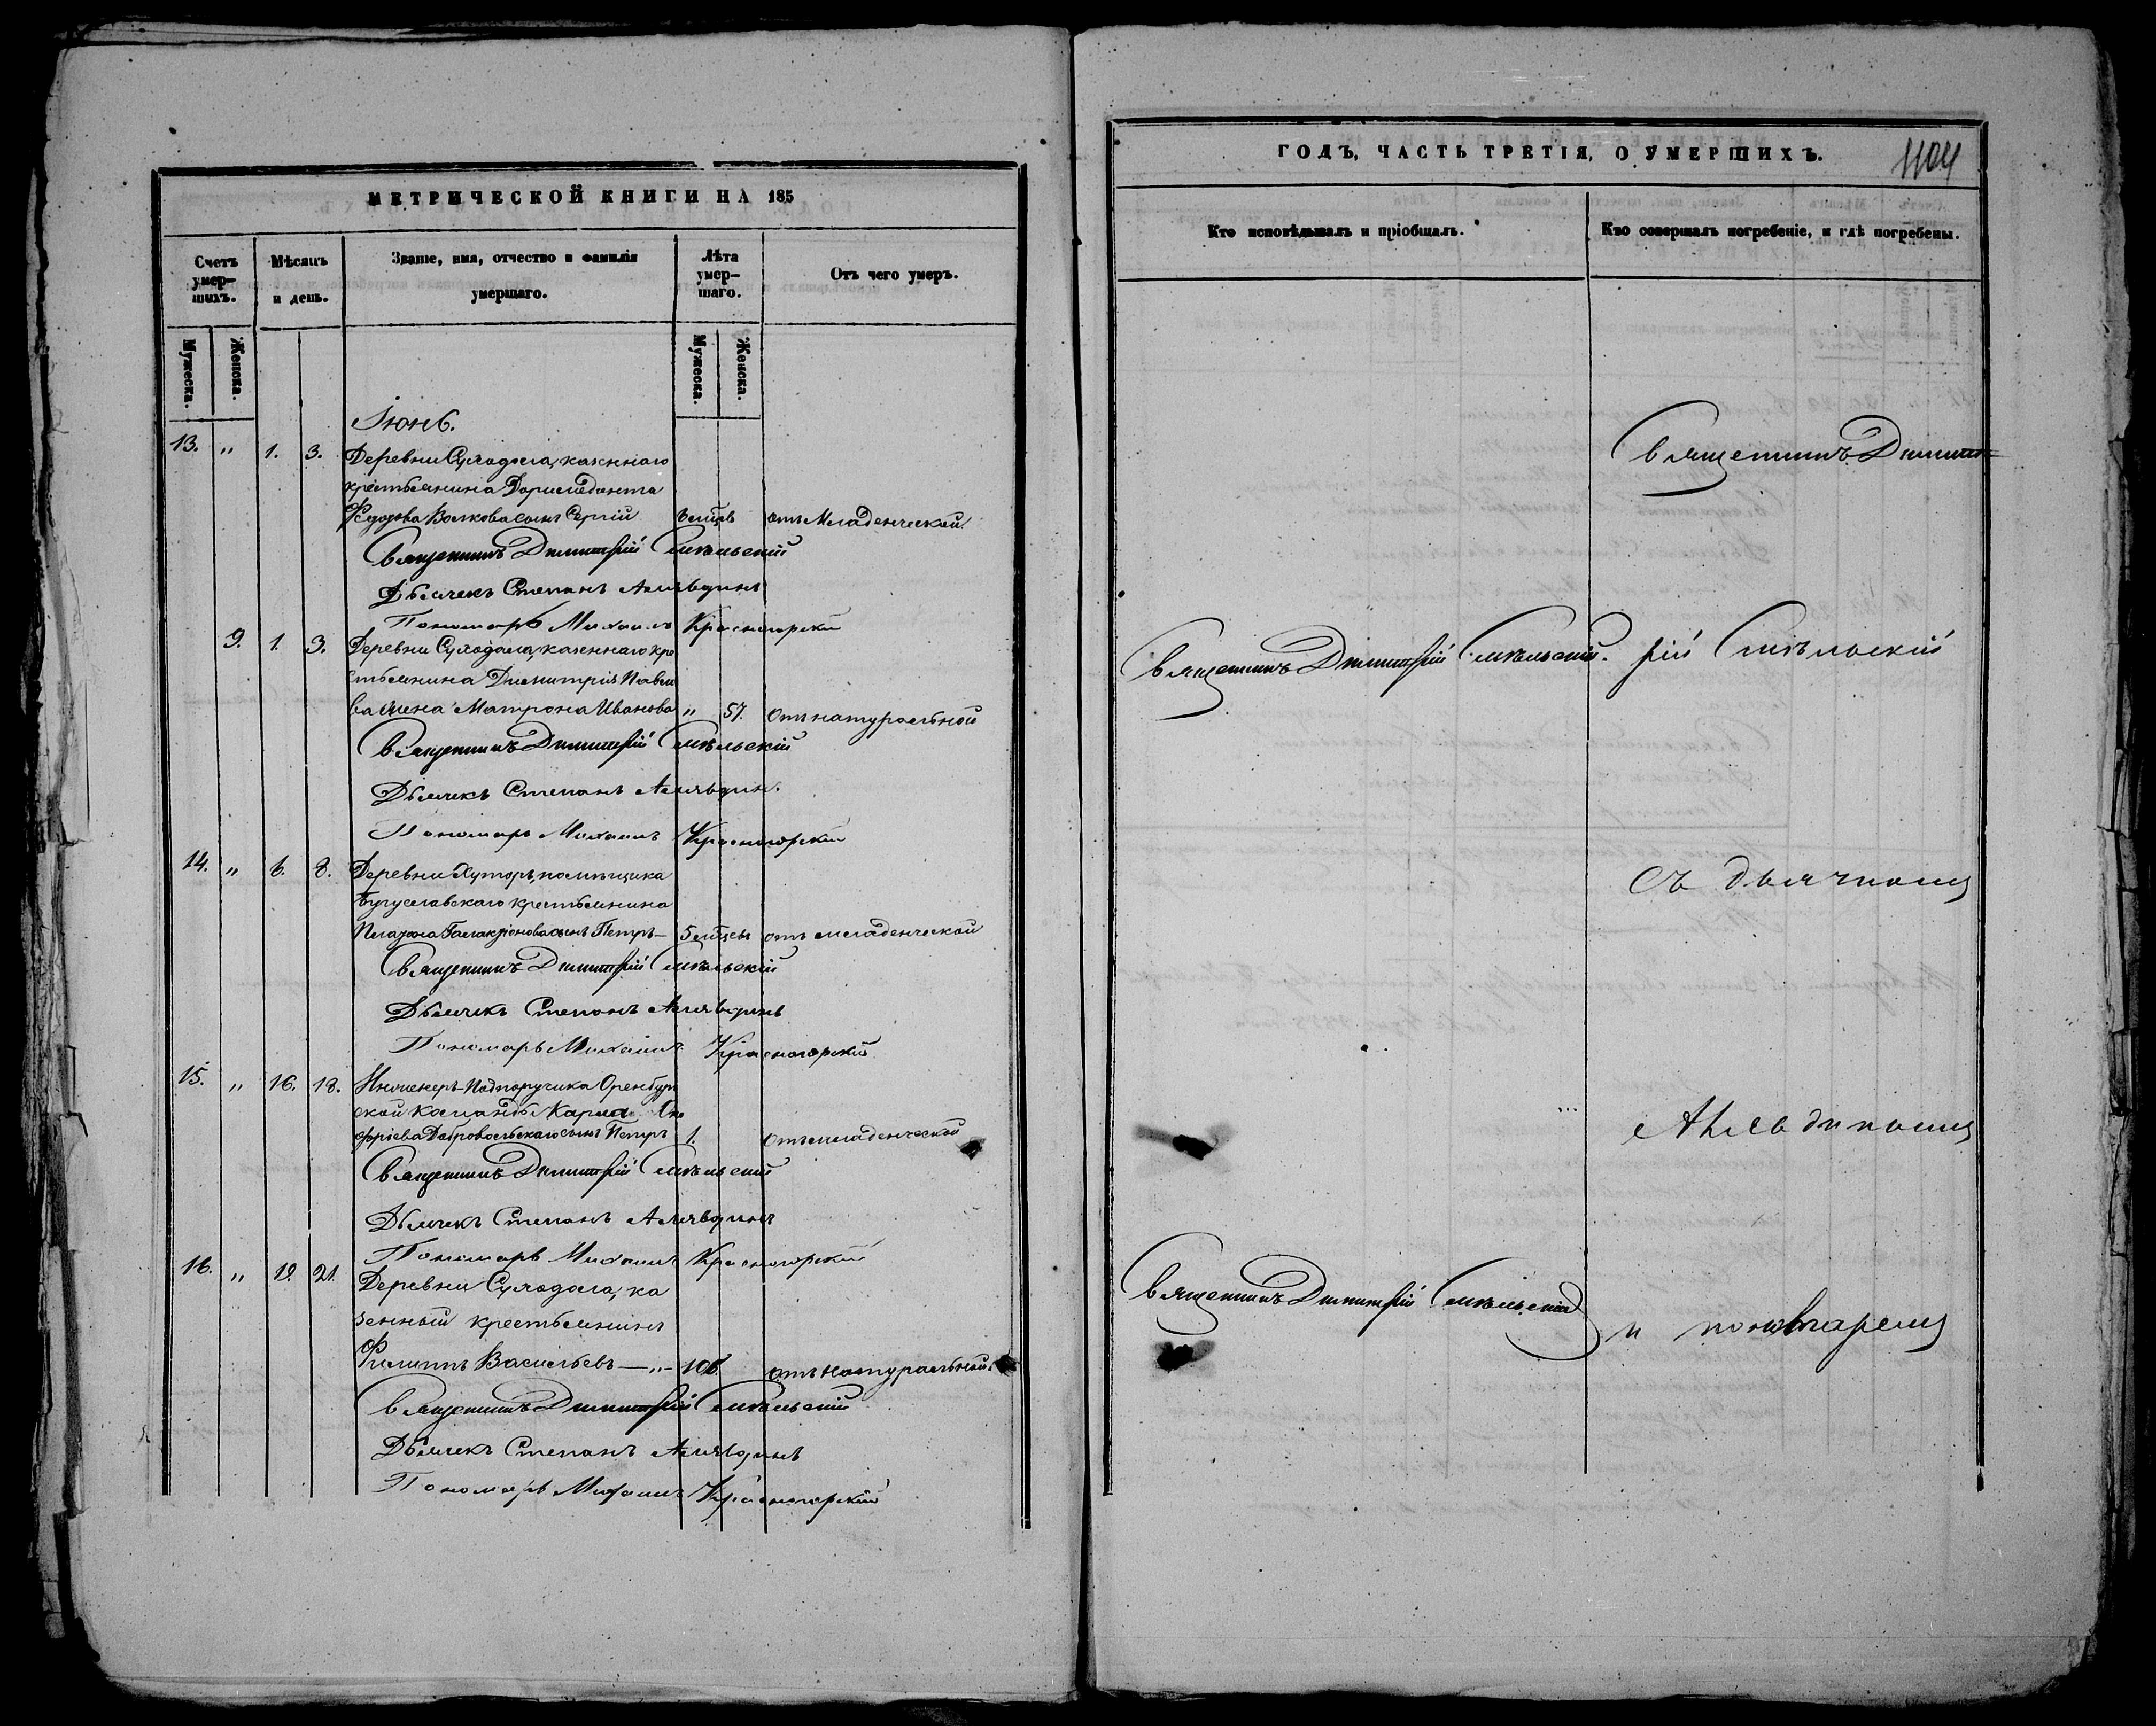 МЕТРИЧЕСКОЙ КНИГИ НА 185
Счетъ умер-шихъ.
Мѣсяцъ и день.
Званіе, имя, отчество и фамилія умершаго.
Лѣта умер-шаго.
Отъ чего умеръ.
Мужеска.
Женска.
Мужеска.
Женска.
Іюнь.
13. " 1. 3. Деревни Суходола, казеннаго
крестьянина
Федорова Волкова сынъ Сергій отъ младенческой.
Священникъ Димитрій Смѣльскій
Дьячекъ Степанъ
Пономарь Михаилъ Красногорскій
9. 1. 3. Деревни Суходола, казеннаго кре
стьянина Димитрія Павло
ва жена Матрона Иванова " 57. отъ натуральной
Священникъ Димитрій Смѣльскій
Дьячекъ Степанъ
Пономарь Михаилъ Красногорскій
14. " 6. 8. Деревни Хуторъ, помѣщика
Бугуславскаго крестьянина
сынъ Петръ — 5 мѣсцы отъ младенческой
Священникъ Димитрій Смѣльскій
Дьячекъ Степанъ
Пономарь Михаилъ Красногорскій
15. " 16. 18. Инженеръ-Подпоручика Оренбург
ской команды Карла
Добровольскаго сынъ Петръ 1. отъ младенческой
Священникъ Димитрій Смѣльскій
Дьячекъ Степанъ
Пономарь Михаилъ Красногорскій
16. " 19. 21. Деревни Суходола, ка
зенный крестьянинъ
Филиппъ Васильевъ — " — 106. отъ натуральной.
Священникъ Димитрій Смѣльскій
Дьячекъ Степанъ
Пономарь Михаилъ Красногорскій
ГОДЪ, ЧАСТЬ ТРЕТІЯ, О УМЕРШИХЪ.
1104
Кто исповѣдывалъ и пріобщалъ.
Кто совершалъ погребеніе, и гдѣ погребены.
Священникъ Димит
Священникъ Димитрій Смѣльскій.
рій Смѣльскій
съ дьячкомъ
Священникъ Димитрій Смѣльскій
и пономаремъ